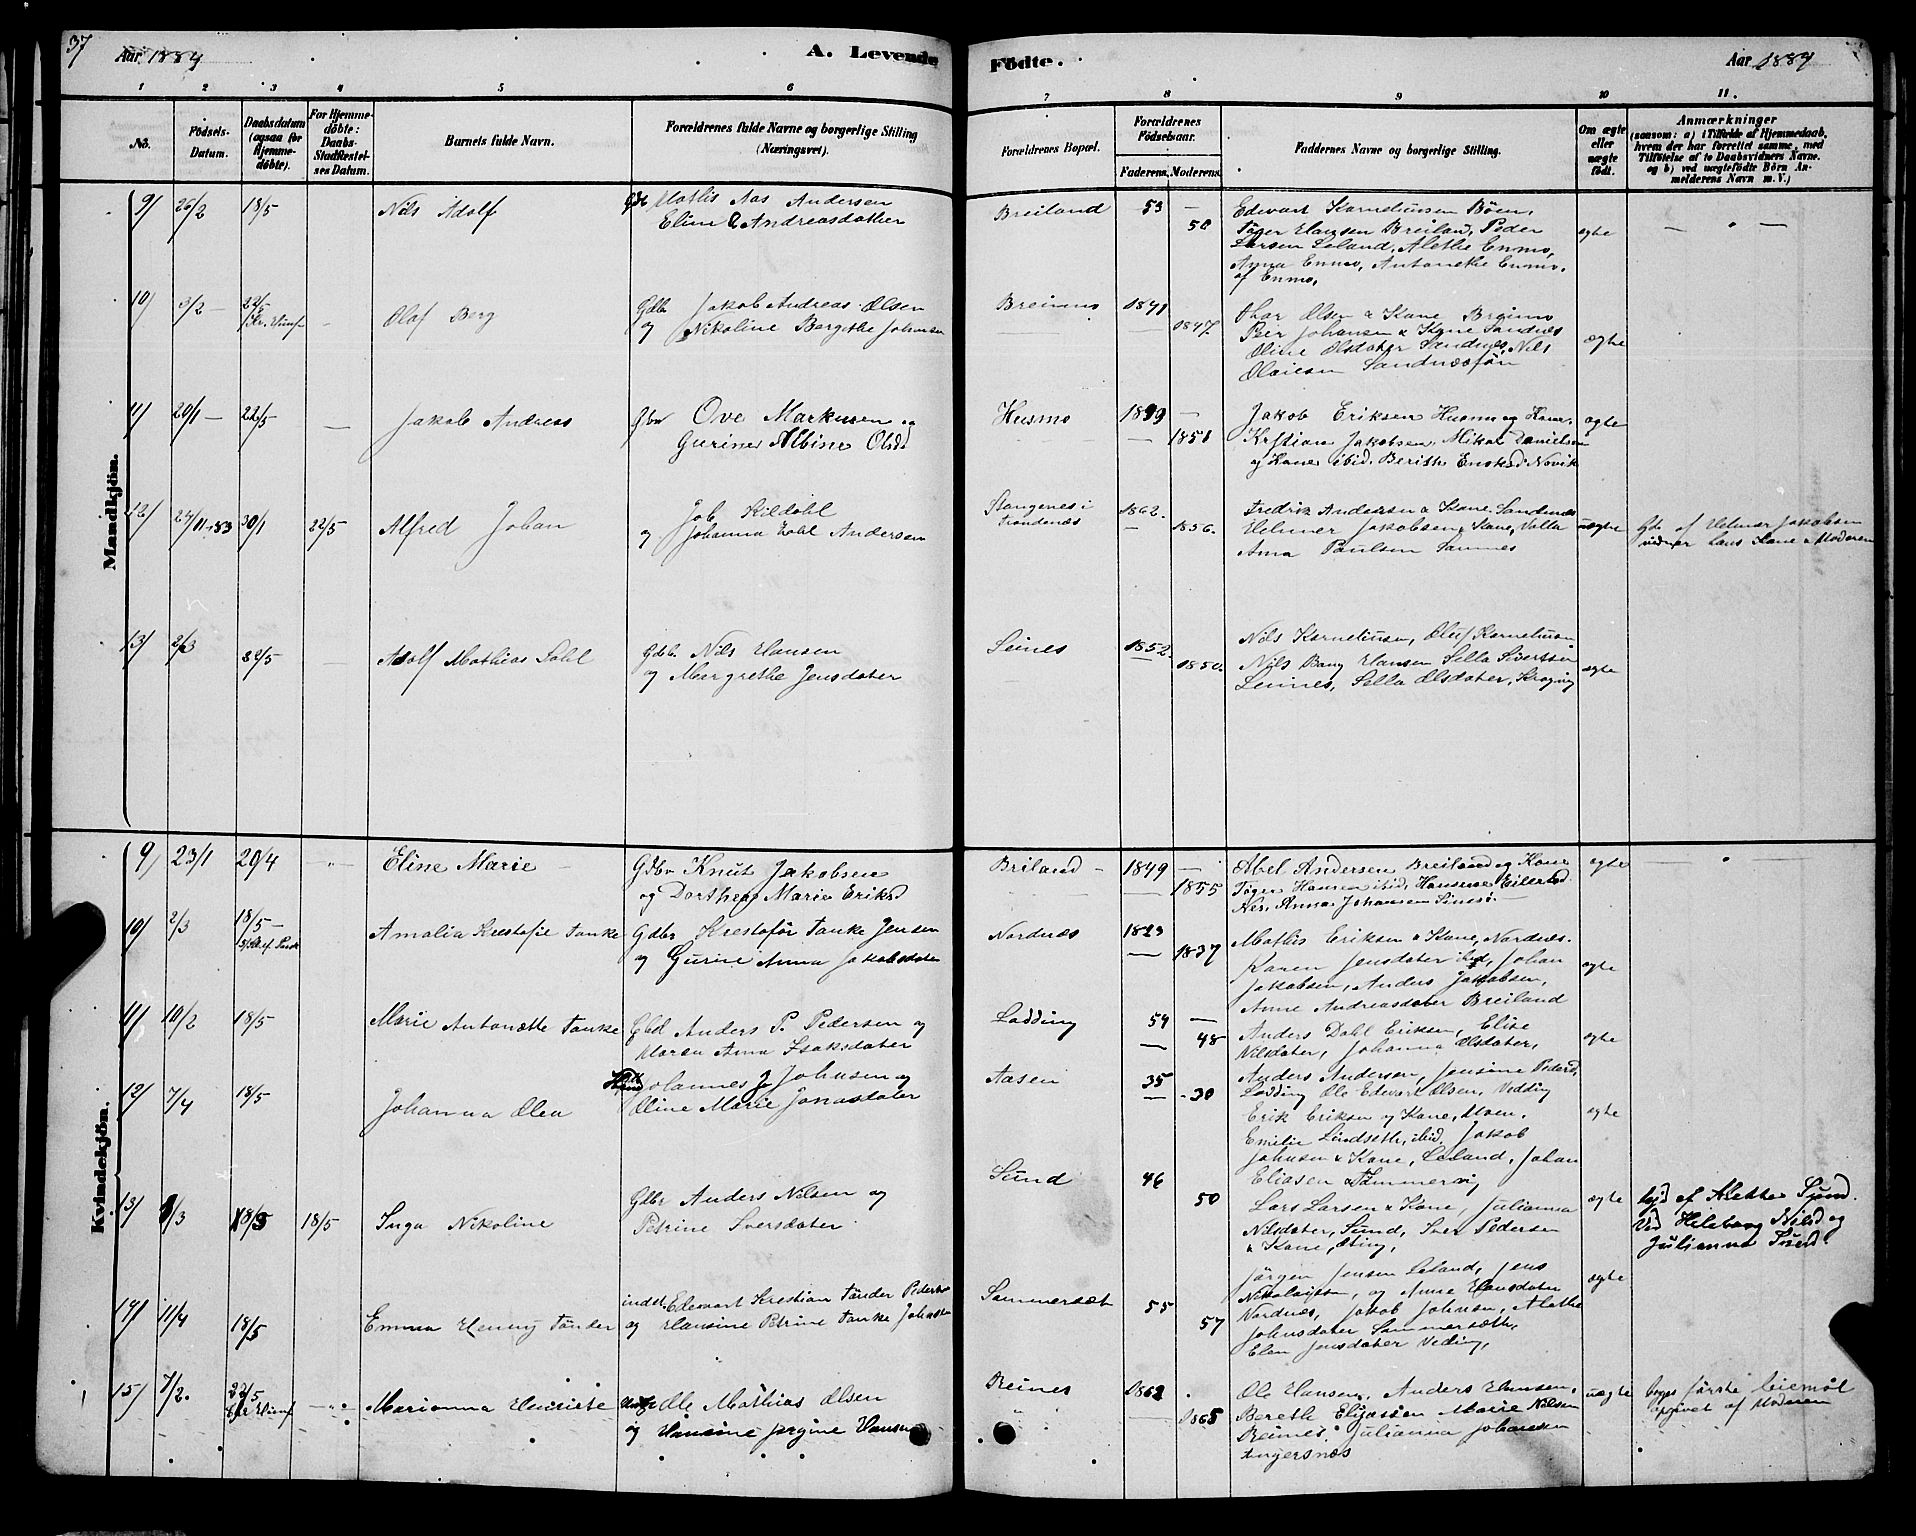 37
Aar 1884
A. Levende
Födte.
Aar 1884
1 2 3 4 5 6 7 8 9 10 11.
No.
Födsels-
Datum.
Daabsdatum
(ogsaa for
Hjemme-
döbte).
For Hjemme-
döbte:
Daabs-
Stadfæstel-
ses Datum.
Barnets fulde Navn.
Forældrenes fulde Navne og borgerlige Stilling
(Næringsvei).
Forældrenes Bopæl.
Forældrenes
Födselsaar.
Faderens. Moderens.
Faddernes Navne og borgerlige Stilling.
Om ægte
eller
uægte
födt.
Anmærkninger
(saasom: a) i Tilfælde af Hjemmedaab,
hvem der har forrettet samme, med
Tilföielse af to Daabsvidners Navne.
og b) ved uægtefödte Börn An-
melderens Navn m.V.)
Mandkjön.
9/ 26/2 18/5 Nils Adolf
Mathis Aas Andersen
Eline Andreasdatter
Breiland 53 —
58
Edevart Korneliussen Böen,
Töger Hansen Breiland, Peder
Larsen Leland, Alethe Enmo,
Anna Enmo, Antonethe Enmo.
af Enmo,
ægte
10/ 3/2 — 22/5
Olaf Berg
Gdbr Jakob Andreas Olsen
og Nikoline Bergithe Johnsen
Breimo 1841
1847.
Thar Olsen & Kane Breimo
Peir Johansen & Kone Sandnes
Oline Olsdater Sandnes, Nils
Olaisen Sandnesfön
ægte
11/ 20/1 — 22/5 — Jakob Andreas
Gbr Ove Markusen og
Gurine Albine Olsd
Husmo 18 —
— 1851
Jakob Eriksen Husmo og Kane.
Kristian Jakobsen, Mikal Danielsen
og Kane ibid. Berith Novik
ægte
12/ 24/11-83 30/1 22/5 Alfred Johan
Job Kildahl
og Johanna Dahl Andersen
Stangenes i
Trondenæs
1862.
— 1856.
Fredrik Andersen & Kane Sandnes
Helmer Jakobsen & Kane, Valla
Ana Paulsen Sannes
uægte
Gde af Helmer Jakobsen
vidner hans Kane & Moderen
13/ 2/3 22/5 — Adolf Mathias Dahl
Gdb. Nils Hansen
og Margrethe Jensdater
Leines 1852.
— 1850.
Nils Korneliusen, Oluf Korneliusen
Nils Bang Hansen Sella Sivertsen
Leines, Sella Olsdater, Kragvig
ægte
Kvindekjön.
9/ 23/1 20/4 Eline Marie
Gdbr Knut Jakobsen
og Dorthea Marie Eriksd
Briland — 1849 —
— 1855
Abel Andersen Breiland og Kane
Töger Hansen ibid, Hansine Eilertsd.
Nes. Anna Johansen
ægte
10/ 2/3 18/5 — Amalia Krestofie Tanke
Gdbr Krestoför Tanke Jensen
og Gurine Anna Jakobsdater
Nordnæs 1823
— 1837
Mathis Eriksen & Kane, Nordnes.
Karen Jensdater ibid, Johan
Jakobsen, Anders Jakobsen,
Anne Andreasdater Breiland
ægte
11/ 10/2 18/5 Marie Antonætte Tanke
Gbd Anders P. Pedersen og
Maren Anna Isaksdater
Ladding 54 —
— 48
Anders Dahl Eriksen, Elise
Nilsdater, Johanna Olsdater,
Anders Andersen, Jensine Pedersd,
Ladding Ole Edevart Olsen, Vedding
ægte
12/ 7/4 18/5 Johanna Olea
Johannes J Johnsen og
Oline Marie Jonasdater
Aasen 35 —
— 30
Erik Eriksen og Kane, Moen.
Emilie Lindseth, ibid, Jakob
Johnsen & Kane, Leland, Johan
Eliasen Tömmervig
ægte
13/ /3 18/5 18/5 Inga Nikoline
Gdbr Anders Nilsen og
Petrine Sversdater
Sund 46
50
Lars Larsen & Kane, Julianna
Nilsdater, Sund, Sver Pedersen
& Kane, Æting,
ægte
hjd af Alethe Sund.
Ved Hileborg Nilsd og
Julianna Sund.
14/ 11/4 18/5 Emma Henny Tönder
inder. Edevart Krestian Tönder Pedersen
og Hansine Petrine Tanke Johnsen
Sommersæt 55
57
Jörgen Jensen Leland, Jens
Nikolaisen, og Anne Hansdater
Nordnæs, Jakob Johnsen, Alethe
Johnsdater Sommersæth,
Elen Jensdater Veding,
ægte
15/ 7/2. 22/5 — Marianna Henriete
Ole Mathias Olsen
og Hansine Jörgine Hansen
Reines 1862
— 1865
Ole Hansen, Anders Hansen,
Berethe Eliassen Marie Nilsen
Reines, Julianna Johansen
Angersnæs
uægte
beges förste leiemöl
opgivet af Moderen